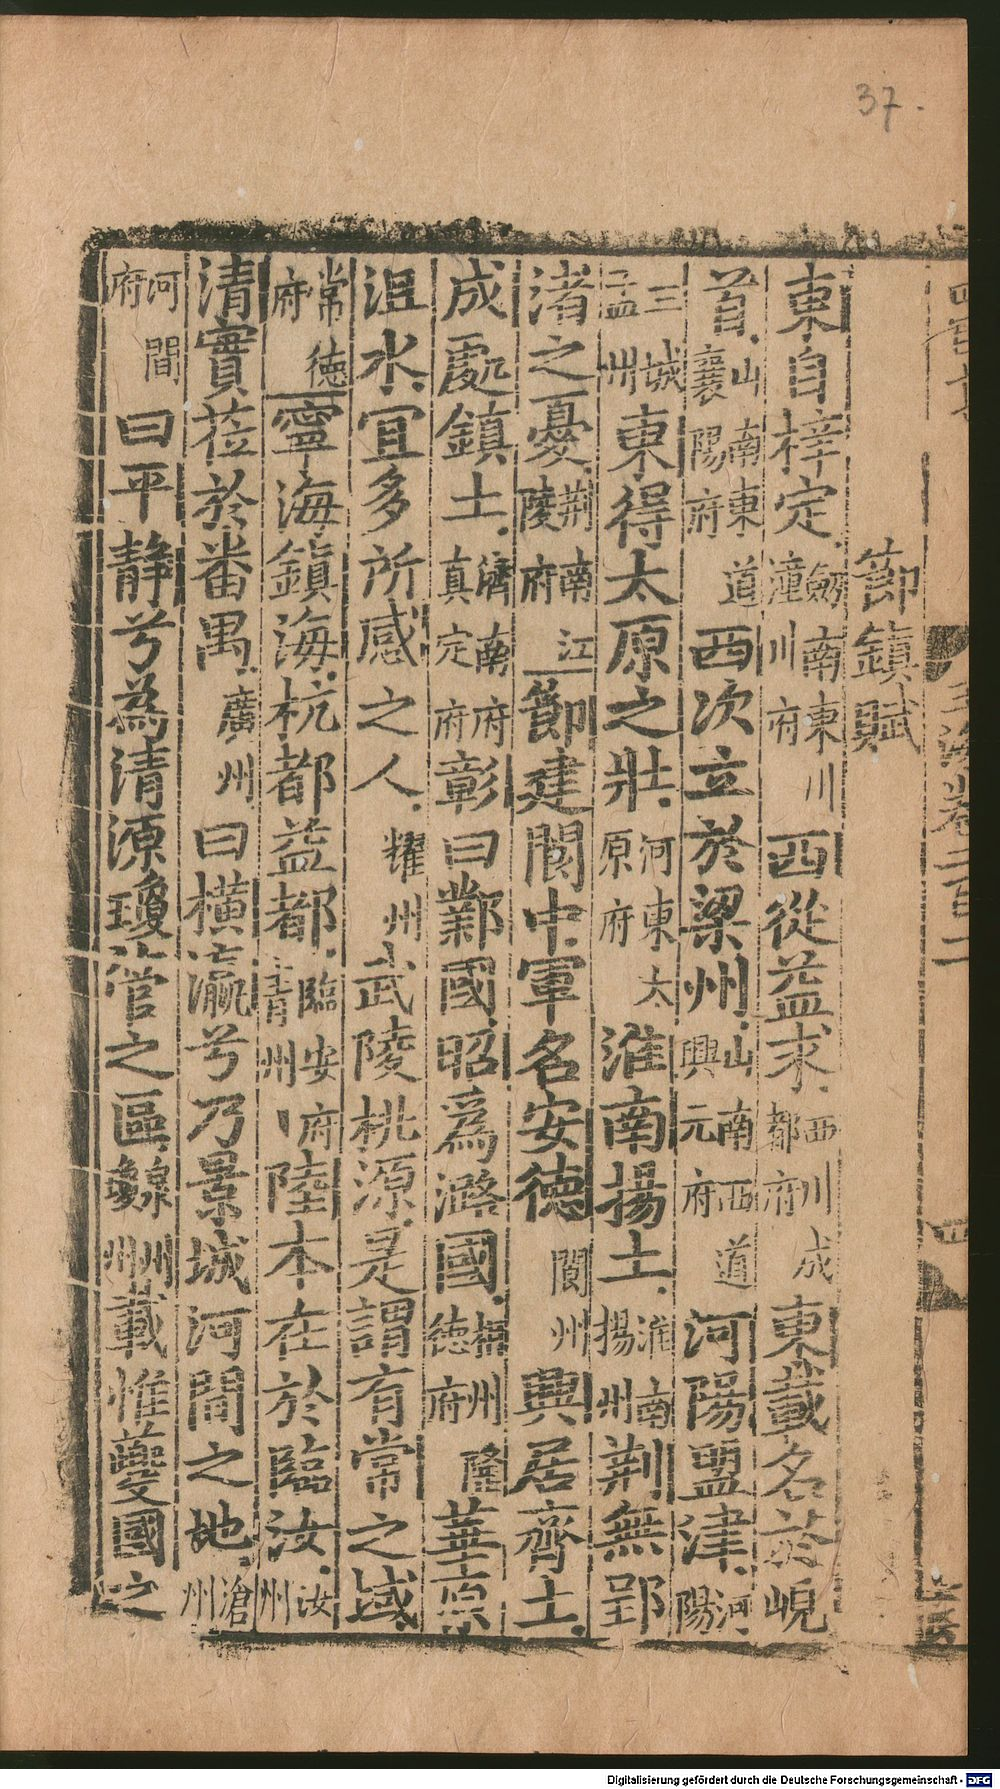 37.
節鎮賦
東自梓定劔南東川潼川府西從益求西川成都府東載名於峴
首山南東道襄陽府西次立於梁州山南西道興元府河陽盟津河陽
三城孟州東得太原之壯河東太原府淮南揚土淮南揚州荆無郢
渚之憂荆南江陵府節建閬中軍名安德閬州興居齊土
成處鎮土濟南府真定府彰曰鄴國昭爲潞國相州隆德府華原
沮水宜多所感之人耀州武陵桃源是謂有常之域
常德府寧海鎮海杭都益都臨安府青州陸本在於臨汝汝州
清實莅於番禺廣州曰橫瀛兮乃景城河間之地滄州
河間府曰平靜兮為清源瓊管之區載惟夔國之
玉海卷二百二
四
Digitalisierung gefördert durch die Deutsche Forschungsgemeinschaft - DFG